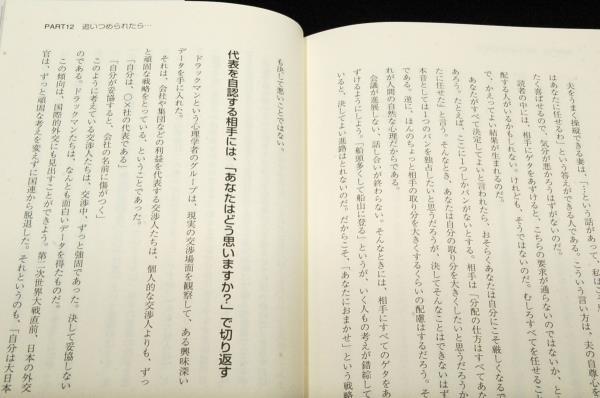 夫をうまく操縦できる妻は、「…という話があって
はあなたに任せるわ」という答えができる人である。こういう言い方は、夫の自尊心を
たく喜ばせるので、気分が悪かろうはずがないのだ。
読者の中には、相手にゲタをあずけると、こちらの要求が通らないのではないか、と
配する人がいるかもしれない。けれども、そうではないのだ。むしろすべてを任せること
で、かえってよい結果が生まれるのだ。
あなたがすべて決定してよいと言われたら、おそらくあなたは自分にこそ厳しくなるで
あろう。たとえば、ここに1つしかパンがないとする。相手は「分配の仕方はすべてあな
たに任せた」と言う。そんなとき、あなたは自分の取り分を大きくしたいと思うだろうか
本音としては1つのパンを独占したいと思うだろうが、決してそんなことはできないはず
である。逆に、ほんのちょっと相手の取り分を大きくするくらいの配慮はするだろう。そ
れが人間の自然な心理だからである。
会議が進展しない、話し合いが終わらない。そんなときには、相手にすべてのゲタをあ
ずけるようにしよう。「船頭多くして船山に登る」というが、いく人もの考えが錯綜して
いると、決してよい進路はとれないのだ。だからこそ、「あなたにおまかせ」という戦略
PART12 追いつめられたら…
も決して悪いことではない。
代表を自認する相手には、「あなたはどう思いますか?」で切り返す
ドラックマンという心理学者のグループは、現実の交渉場面を観察して、ある興味深い
データを手に入れた。
それは、会社や集団などの利益を代表する交渉人たちは、個人的な交渉人よりも、ずっ
と頑固な戦略をとっている、ということであった。
「自分は、○×社の代表である」
「自分が妥協すると、会社の名前に傷がつく」
このように考えている交渉人たちは、交渉中、ずっと強固であった。決して妥協しない
のである。ドラックマンたちは、なんとも面白いデータを得たものだ。
この傾向は、国際的外交にも見出すことができよう。第二次世界大戦直前、日本の外交
官は、ずっと頑固な考えを変えずに国連から脱退した。それというのも、「自分は大日本